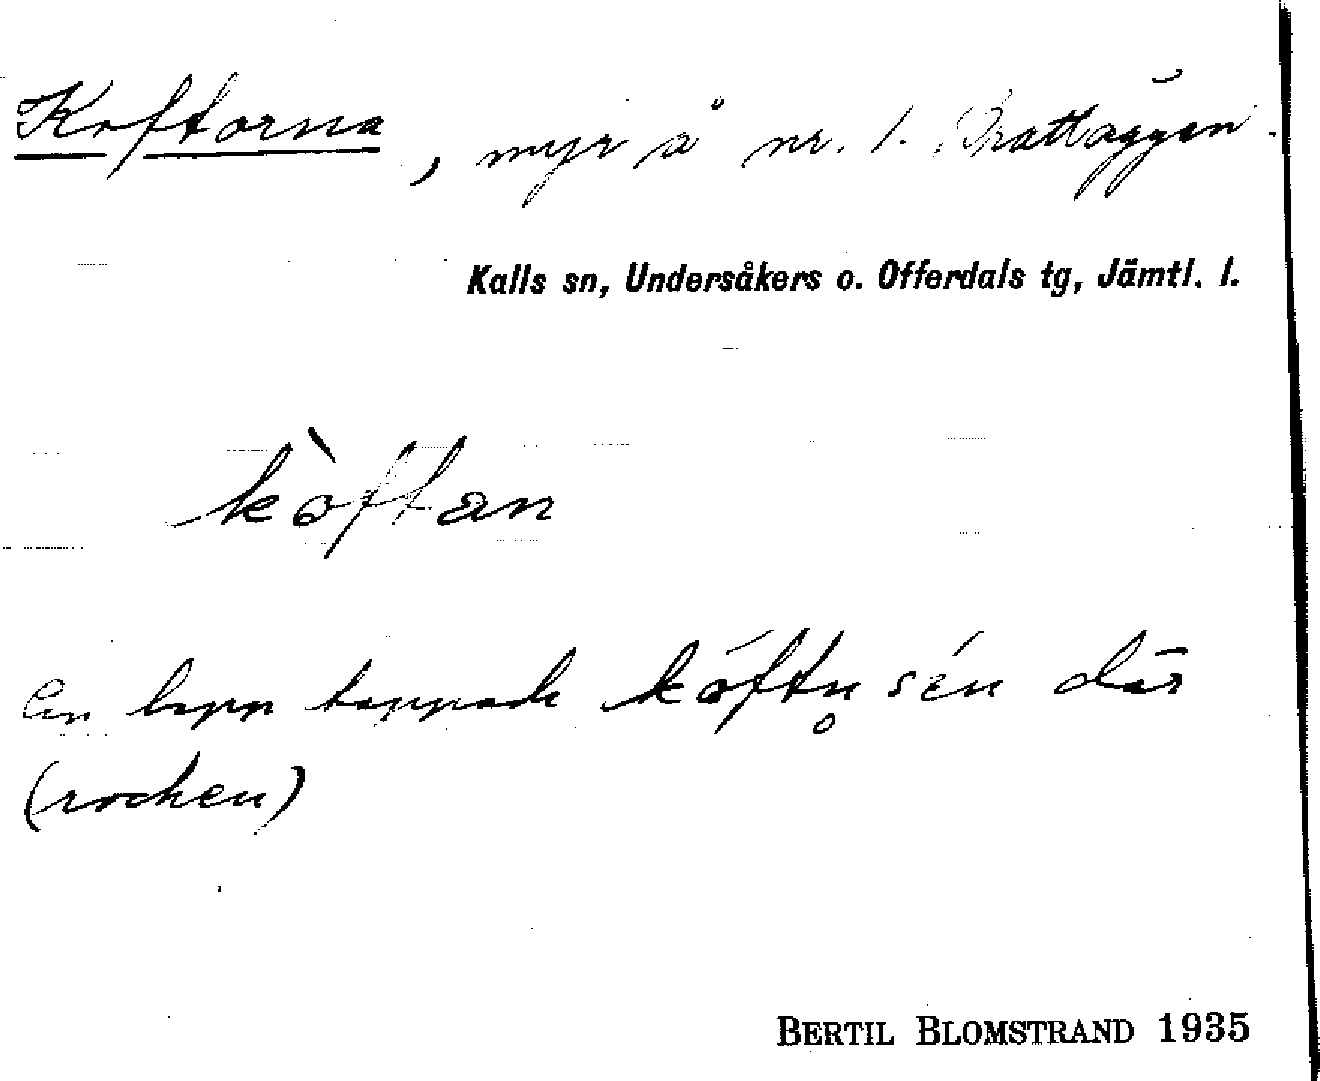 Koftorna, myr å nr. 1. Brattäggen.
Kalls sn, Undersåkers o. Offerdals tg, Jämtl. l.
kòftan
En lapp tappade kóftn̥ sén där
(rocken)
BERTIL BLOMSTRAND 1935